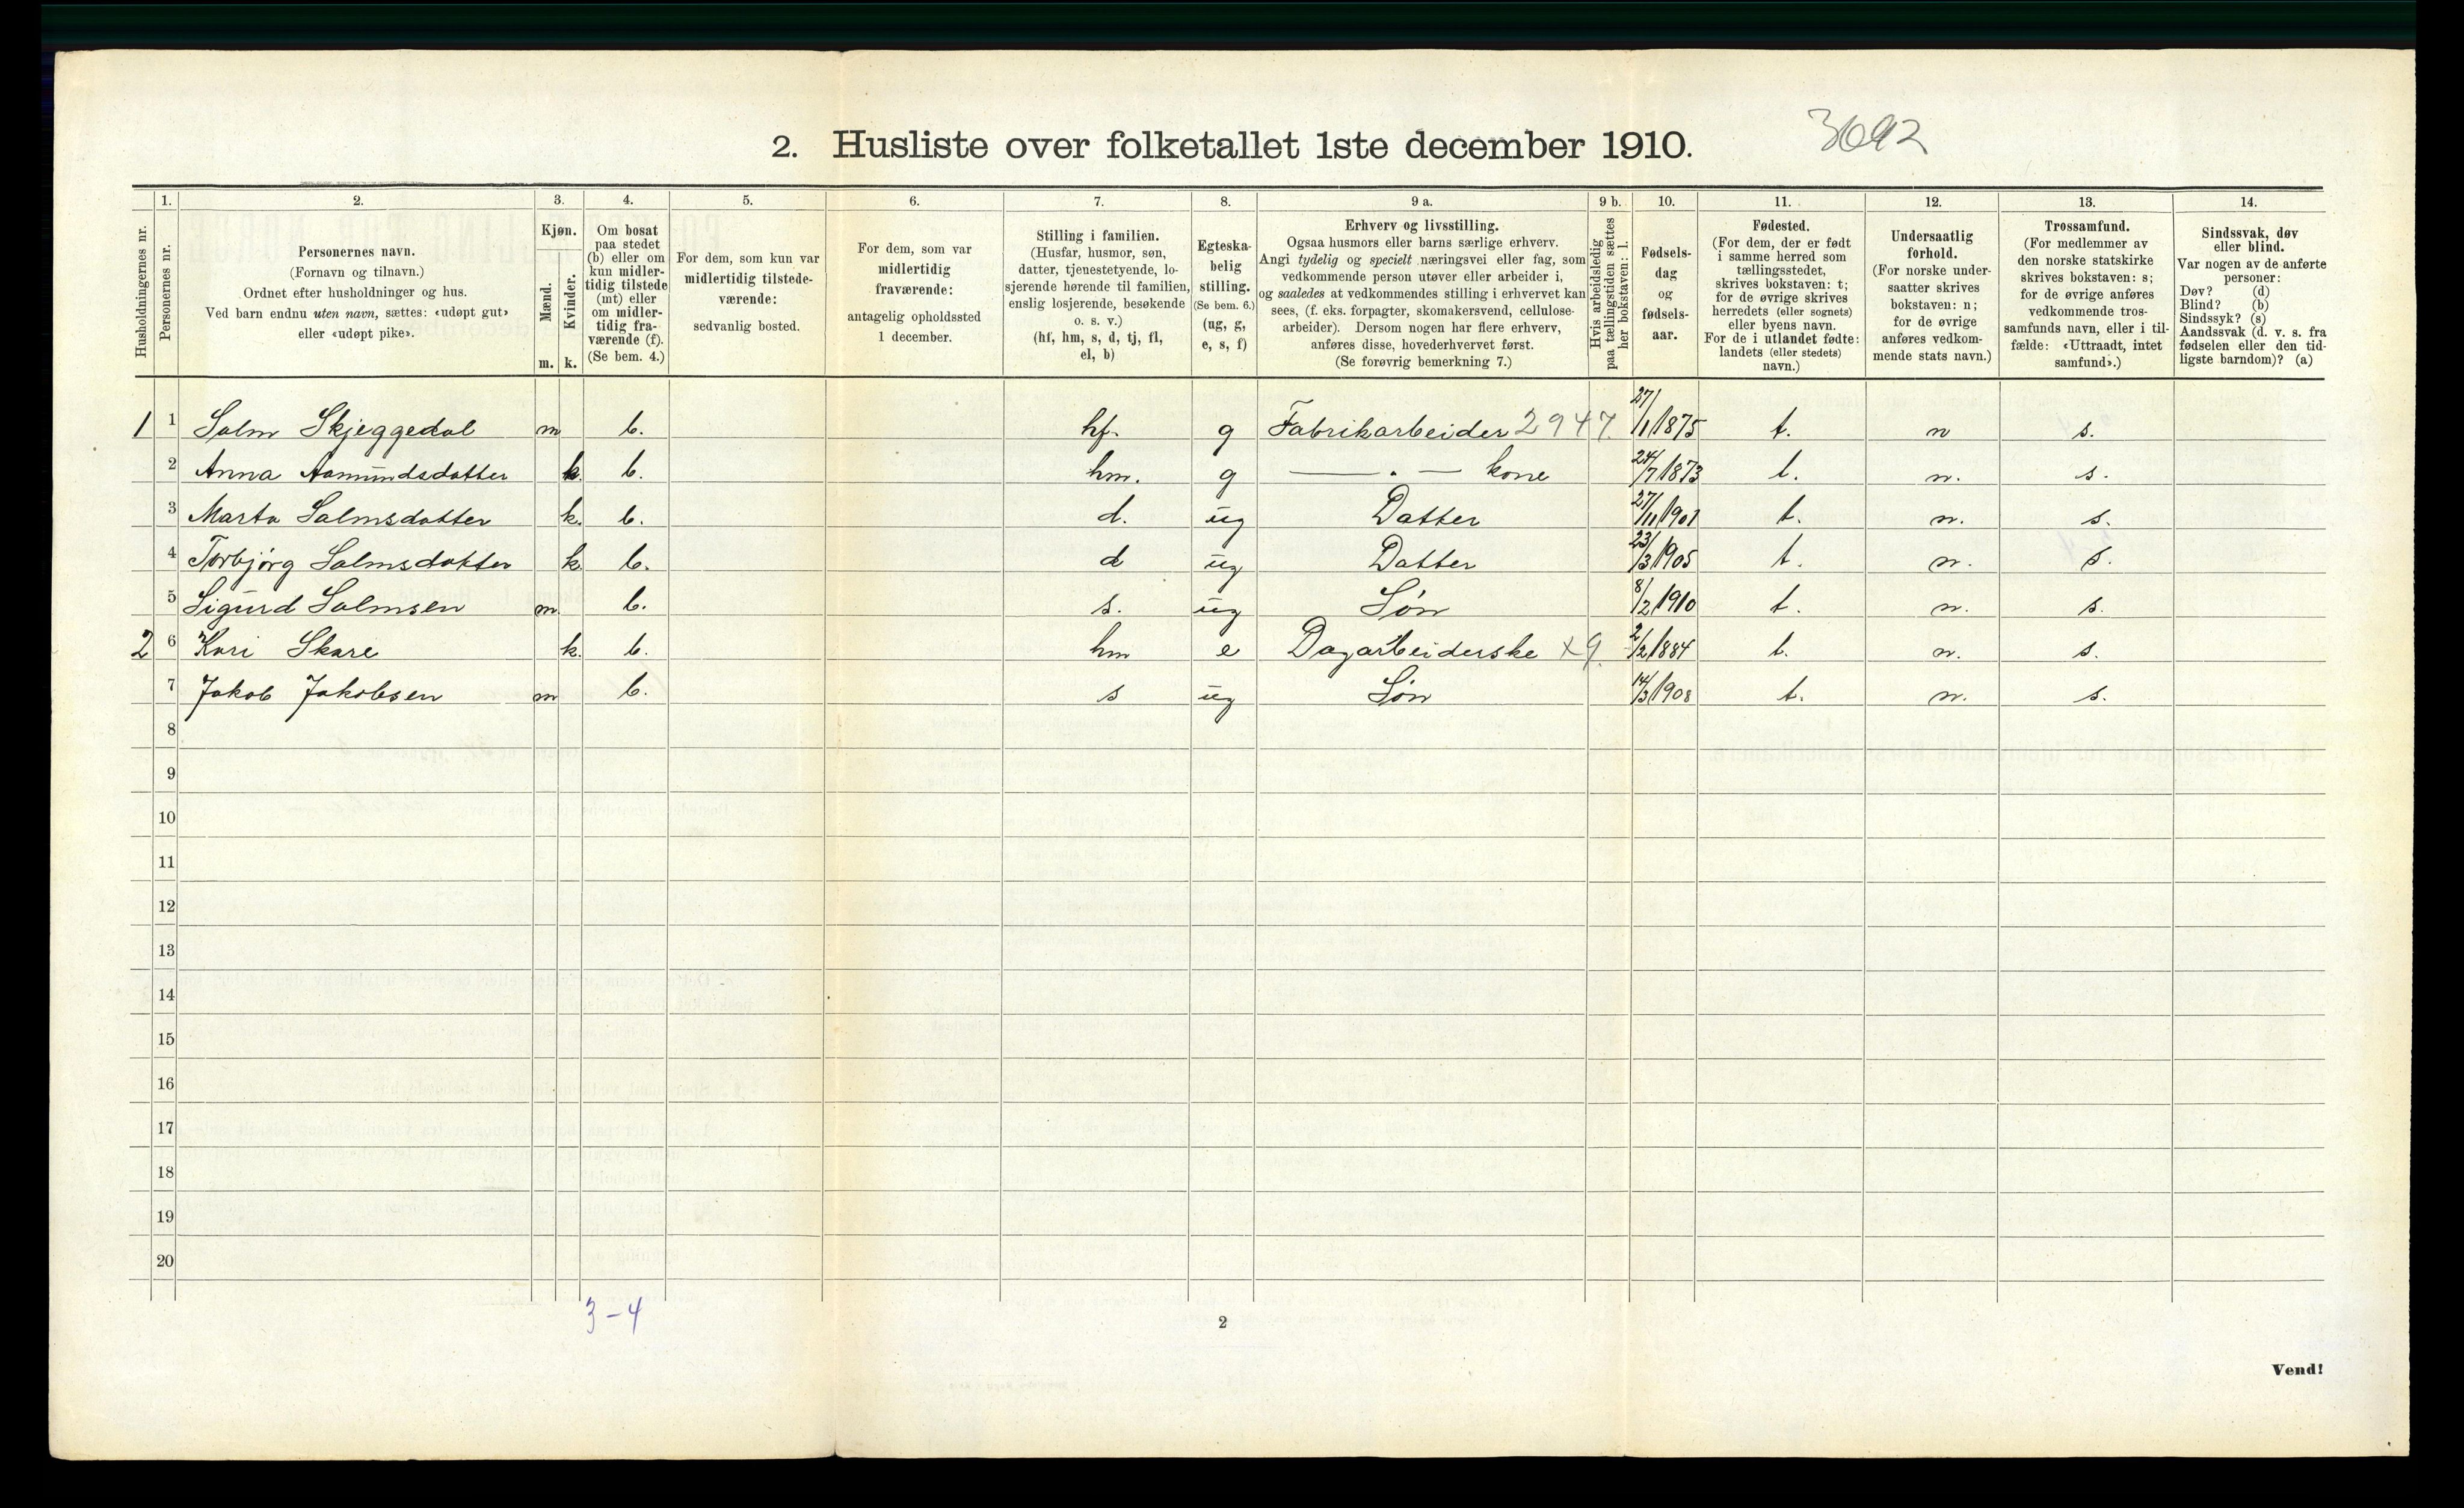 2. Husliste over folketallet 1ste december 1910. 3692
Husholdningernes nr.
1. Personernes nr.
2. Personernes navn.
(Fornavn og tilnavn.)
Ordnet efter husholdninger og hus.
Ved barn endnu uten navn, sættes: «udøpt gut»
eller «udøpt pike».
3. Kjøn.
Mænd. m.
Kvinder. k.
4. Om bosat
paa stedet
(b) eller om
kun midler-
tidig tilstede
(mt) eller
om midler-
tidig fra-
værende (f).
(Se bem. 4.)
5. For dem, som kun var
midlertidig tilstede-
værende:
sedvanlig bosted.
6. For dem, som var
midlertidig
fraværende:
antagelig opholdssted
1 december.
7. Stilling i familien.
(Husfar, husmor, søn,
datter, tjenestetyende, lo-
sjerende hørende til familien,
enslig losjerende, besøkende
o. s. v.)
(hf, hm, s, d, tj, fl,
el, b)
8. Egteska-
belig
stilling.
(Se bem. 6.)
(ug, g,
e, s, f)
9 a. Erhverv og livsstilling.
Ogsaa husmors eller barns særlige erhverv.
Angi tydelig og specielt næringsvei eller fag, som
vedkommende person utøver eller arbeider i,
og saaledes at vedkommendes stilling i erhvervet kan
sees, (f. eks. forpagter, skomakersvend, cellulose-
arbeider). Dersom nogen har flere erhverv,
anføres disse, hovederhvervet først.
(Se forøvrig bemerkning 7.)
9 b. Hvis arbeidsledig
paa tællingstiden sættes
her bokstaven: l.
10. Fødsels-
dag
og
fødsels-
aar.
11. Fødested.
(For dem, der er født
i samme herred som
tællingsstedet,
skrives bokstaven: t;
for de øvrige skrives
herredets (eller sognets)
eller byens navn.
For de i utlandet fødte:
landets (eller stedets)
navn.)
12. Undersaatlig
forhold.
(For norske under-
saatter skrives
bokstaven: n;
for de øvrige
anføres vedkom-
mende stats navn.)
13. Trossamfund.
(For medlemmer av
den norske statskirke
skrives bokstaven: s;
for de øvrige anføres
vedkommende tros-
samfunds navn, eller i til-
fælde: «Uttraadt, intet
samfund».)
14. Sindssvak, døv
eller blind.
Var nogen av de anførte
personer:
Døv? (d)
Blind? (b)
Sindssyk? (s)
Aandssvak (d. v. s. fra
fødselen eller den tid-
ligste barndom)? (a)
1 1 Salm Skjeggedal m b. hf. g Fabrikarbeider 2947. 27/1 1875 t. n s.
2 Anna Aamundsdatter k. b. hm. g — . — kone 24/7 1873 t. n. s.
3 Marta Salmsdatter k. b. d. ug Datter 27/11 1901 t. n. s.
4 Torbjørg Salmsdatter k. b. d ug Datter 23/3 1905 t. n. s.
5 Sigurd Salmsen m. b. s. ug Søn 8/2 1910 t. n. s.
2 6 Kari Skare k. b. hm e Dagarbeiderske x9. 2/2 1884 t. n. s.
7 Jakob Jakobsen m b. s ug Søn 14/3 1908 t. n. s.
8
9
10
11
12
13
14
15
16
17
18
19
20
3-4
2
Vend!